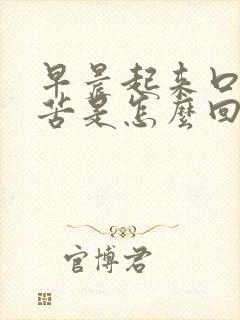 早晨起来口
苦是怎麼回
官博君